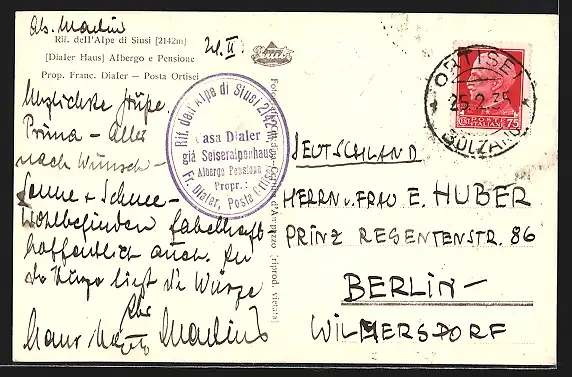 Abs. Martin
Rif. dell'Alpe di Siusi [2142m]
[Dialer Haus] Albergo e Pensione
Prop. Franc. Dialer – Posta Ortisei
24.II.
Herzlichste Grüße.
Prima – alles
nach Wunsch –
Sonne + Schnee –
Wohlbefinden fabelhaft
hoffentlich auch. In
der Kürze liegt die Würze
Ihr
Hans Martin
Rif. dell'Alpe di Siusi 2142 m.
Casa Dialer
già Seiseralpenhaus
Albergo Pensione
Propr.:
Fr. Dialer, Posta
d'Ampezzo [riprod. vietata]
ORTISEI
25.2.
BOLZANO
POSTE
ITALIANE
75
DEUTSCHLAND
HERRN U. FRAU E. HUBER
PRINZ REGENTENSTR. 86
BERLIN –
WILMERSDORF